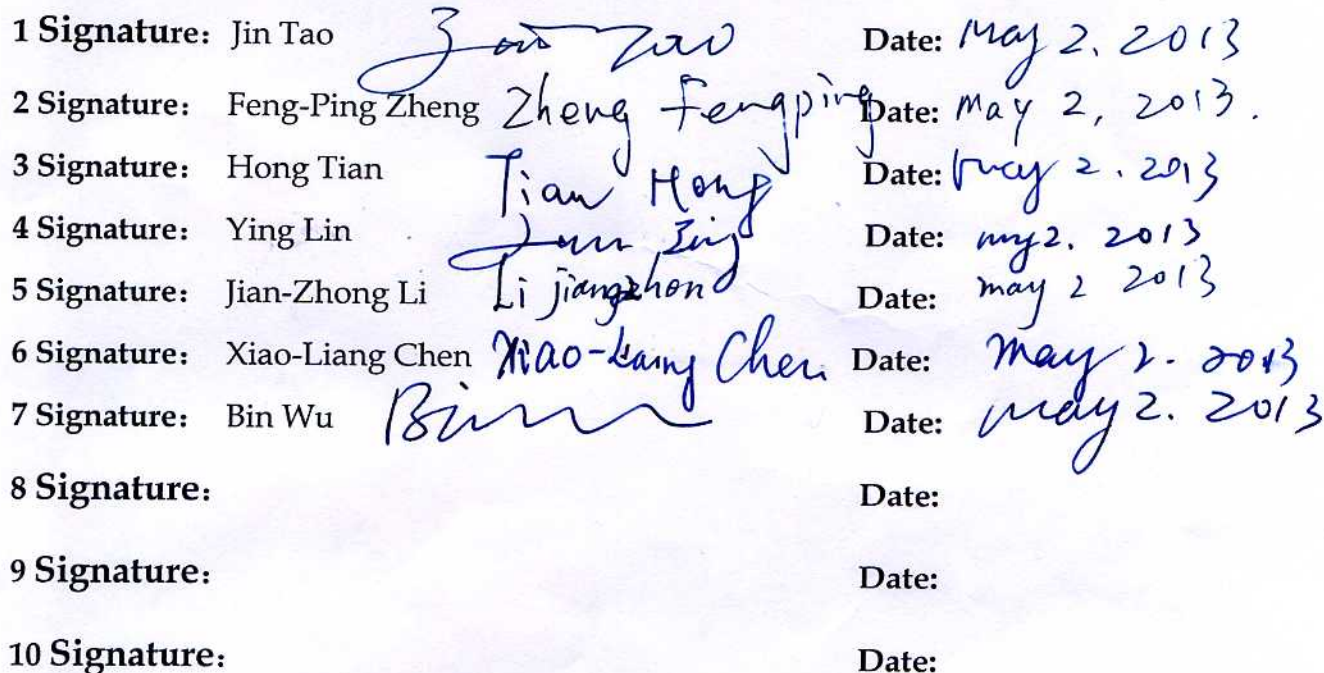 1 Signature: Jin Tao Jin Tao Date: May 2. 2013
2 Signature: Feng-Ping Zheng Zheng Fengping Date: May 2, 2013.
3 Signature: Hong Tian Tian Hong Date: May 2. 2013
4 Signature: Ying Lin Date: may 2. 2013
5 Signature: Jian-Zhong Li Li jiangzhon Date: may 2 2013
6 Signature: Xiao-Liang Chen Xiao-Liang Chen Date: May 2. 2013
7 Signature: Bin Wu Date: may 2. 2013
8 Signature: Date:
9 Signature: Date:
10 Signature: Date: